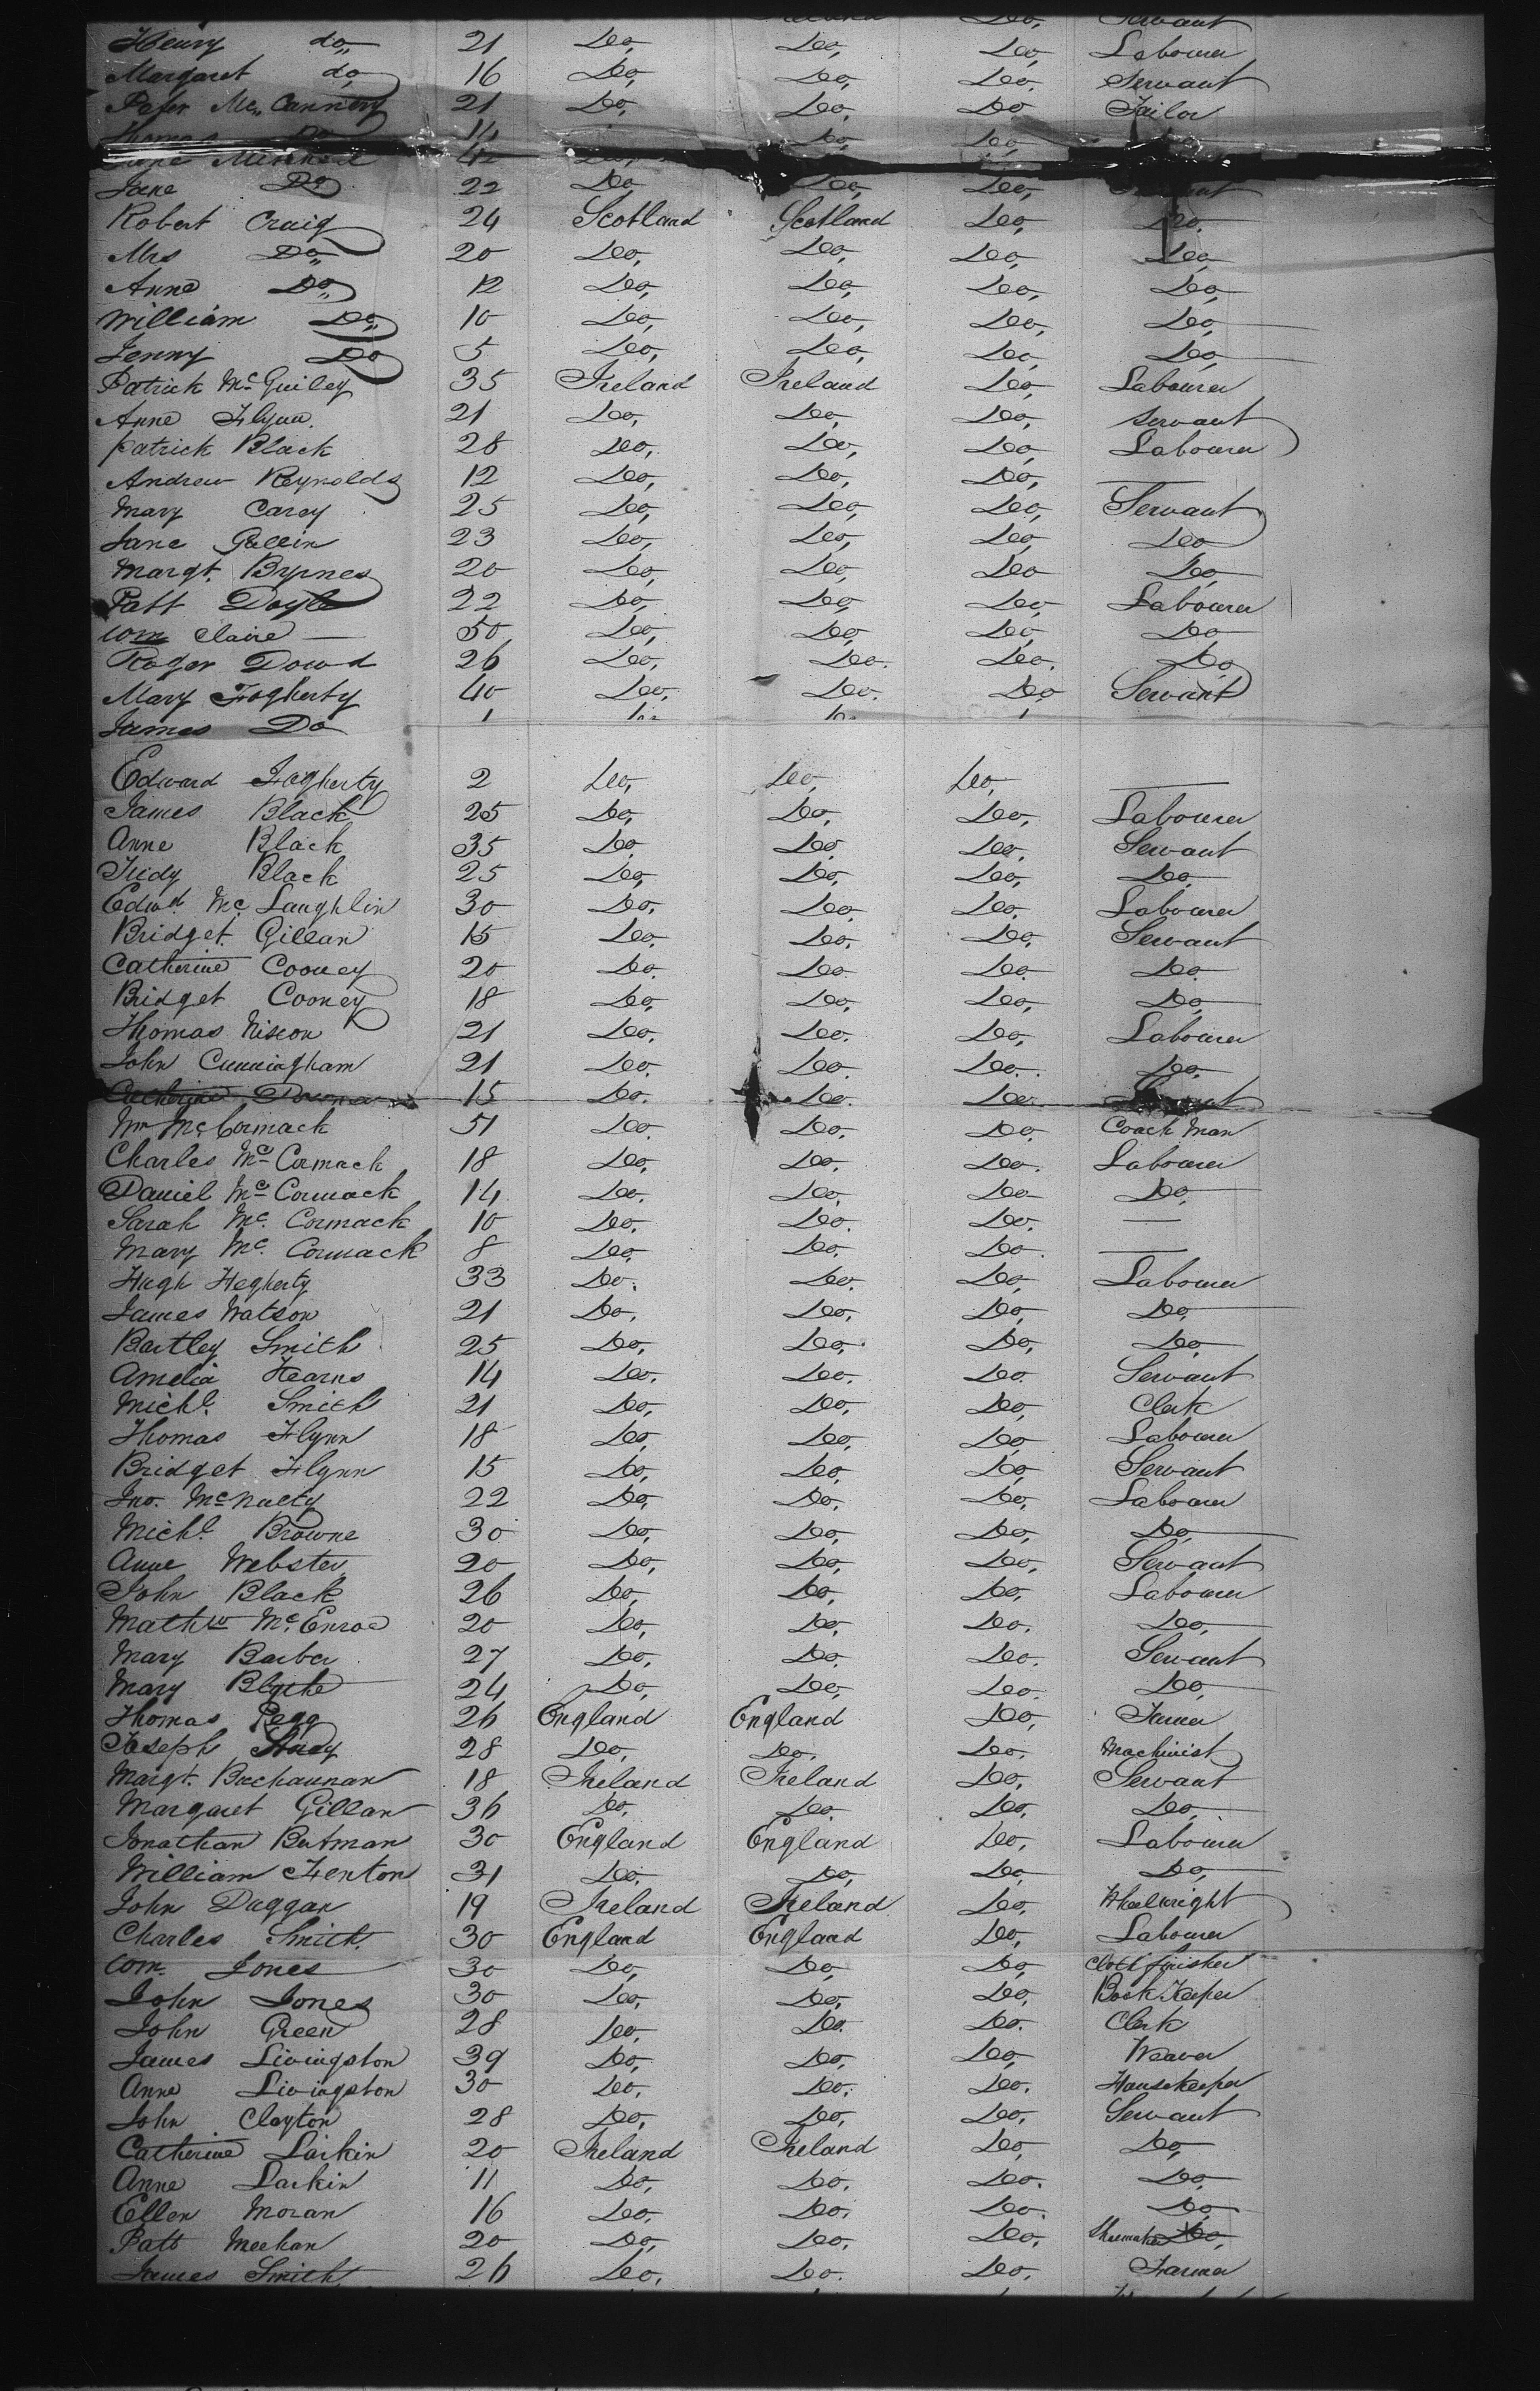 Do, Servant
Henry do,, 21 Do, Do, Do, Labourer
Margaret do, 16 Do, Do, Do, Servant
Peter Mc,, Cannery 21 Do, Do, Do Tailor
Thomas Do 14 Do, Do,
42
Jane Do 22 Do, Do, Do,
Robert Craig 24 Scotland Scotland Do, Do.
Mrs Do,, 20 Do, Do, Do, Do,
Anne Do,, 12 Do, Do, Do, Do,
William Do,, 10 Do, Do, Do, Do,
Jenny Do 5 Do, Do, Do, Do,
Patrick Mc Guiley 35 Ireland Ireland Do, Labourer
Anne Flynn. 21 Do, Do, Do, Servant
Patrick Black 28 Do, Do, Do, Labourer
Andrew Reynolds 12 Do, Do, Do, —
Mary Carey 25 Do, Do, Do, Servant
Jane Gillin 23 Do, Do, Do, Do
Margt. Byrnes 20 Do, Do, Do Do,
Patt Doyle 22 Do, Do, Do, Labourer
Wm Claire — 50 Do, Do, Do, Do
Roger Dowd 26 Do, Do. Do. Do
Mary Fogherty 40 Do. Do. Do Servant
James Do
Edward Fogherty 2 Do, Do, Do, —
James Black 25 Do, Do, Do, Labourer
Anne Black 35 Do, Do, Do, Servant
Judy Black 25 Do, Do, Do, Do
Edwd. Mc Laughlin 30 Do, Do, Do, Labourer
Bridget Gillan 15 Do, Do, Do, Servant
Catherine Cooney 20 Do. Do. Do. Do
Bridget Cooney 18 Do, Do, Do, Do
Thomas Nixon 21 Do, Do. Do, Labourer
John Cunningham 21 Do. Do. Do. Do.
Catherine 15 Do. Do. Do.
Wm McCormack 51 Do. Do. Do. Coach Man
Charles Mc Cormack 18 Do, Do, Do. Labourer
Daniel Mc Cormack 14 Do. Do. Do Do,
Sarah Mc. Cormack 10 Do, Do. Do. —
Mary Mc. Cormack 8 Do, Do. Do. —
Hugh Hegherty 33 Do. Do. Do, Labourer
James Watson 21 Do, Do, Do, Do,
Bartley Smith 25 Do, Do, Do, Do
Amelia Hearns 14 Do. Do. Do. Servant
Michl. Smith 21 Do, Do, Do, Clerk
Thomas Flynn 18 Do, Do, Do, Labourer
Bridget Flynn 15 Do, Do, Do, Servant
Jno. McNulty 22 Do, Do, Do, Labourer
Michl. Browne 30 Do, Do, Do, Do,
Anne Webster 20 Do, Do, Do, Servant
John Black 26 Do, Do, Do, Labourer
Mathw Mc. Enroe 20 Do, Do, Do. Do,
Mary Barber 27 Do, Do. Do. Servant
Mary Blythe 24 Do, Do, Do. Do,
Thomas Pegg 26 England England Do, Farmer
Joseph 28 Do, Do, Do, Machinist
Margt. Buchannan 18 Ireland Ireland Do, Servant
Margaret Gillan 36 Do, Do. Do, Do,
Jonathan Butman 30 England England Do, Labourer
William Fenton 31 Do. Do, Do, Do,
John Duggan 19 Ireland Ireland Do, Wheelwright
Charles Smith 30 England England Do, Labourer
Wm. Jones 30 Do, Do, Do, Cloth finisher
John Jones 30 Do, Do, Do, Book Keeper
John Green 28 Do, Do. Do. Clerk
James Livingston 39 Do, Do, Do, Weaver
Anne Livingston 30 Do, Do. Do. Housekeeper
John Clayton 28 Do, Do, Do, Servant
Catherine Larkin 20 Ireland Ireland Do, Do,
Anne Larkin 11 Do, Do. Do. Do,
Ellen Moran 16 Do, Do, Do. Do,
Patt Meehan 20 Do, Do, Do, Shoemaker Do,
James Smith 26 Do, Do. Do, Farmer